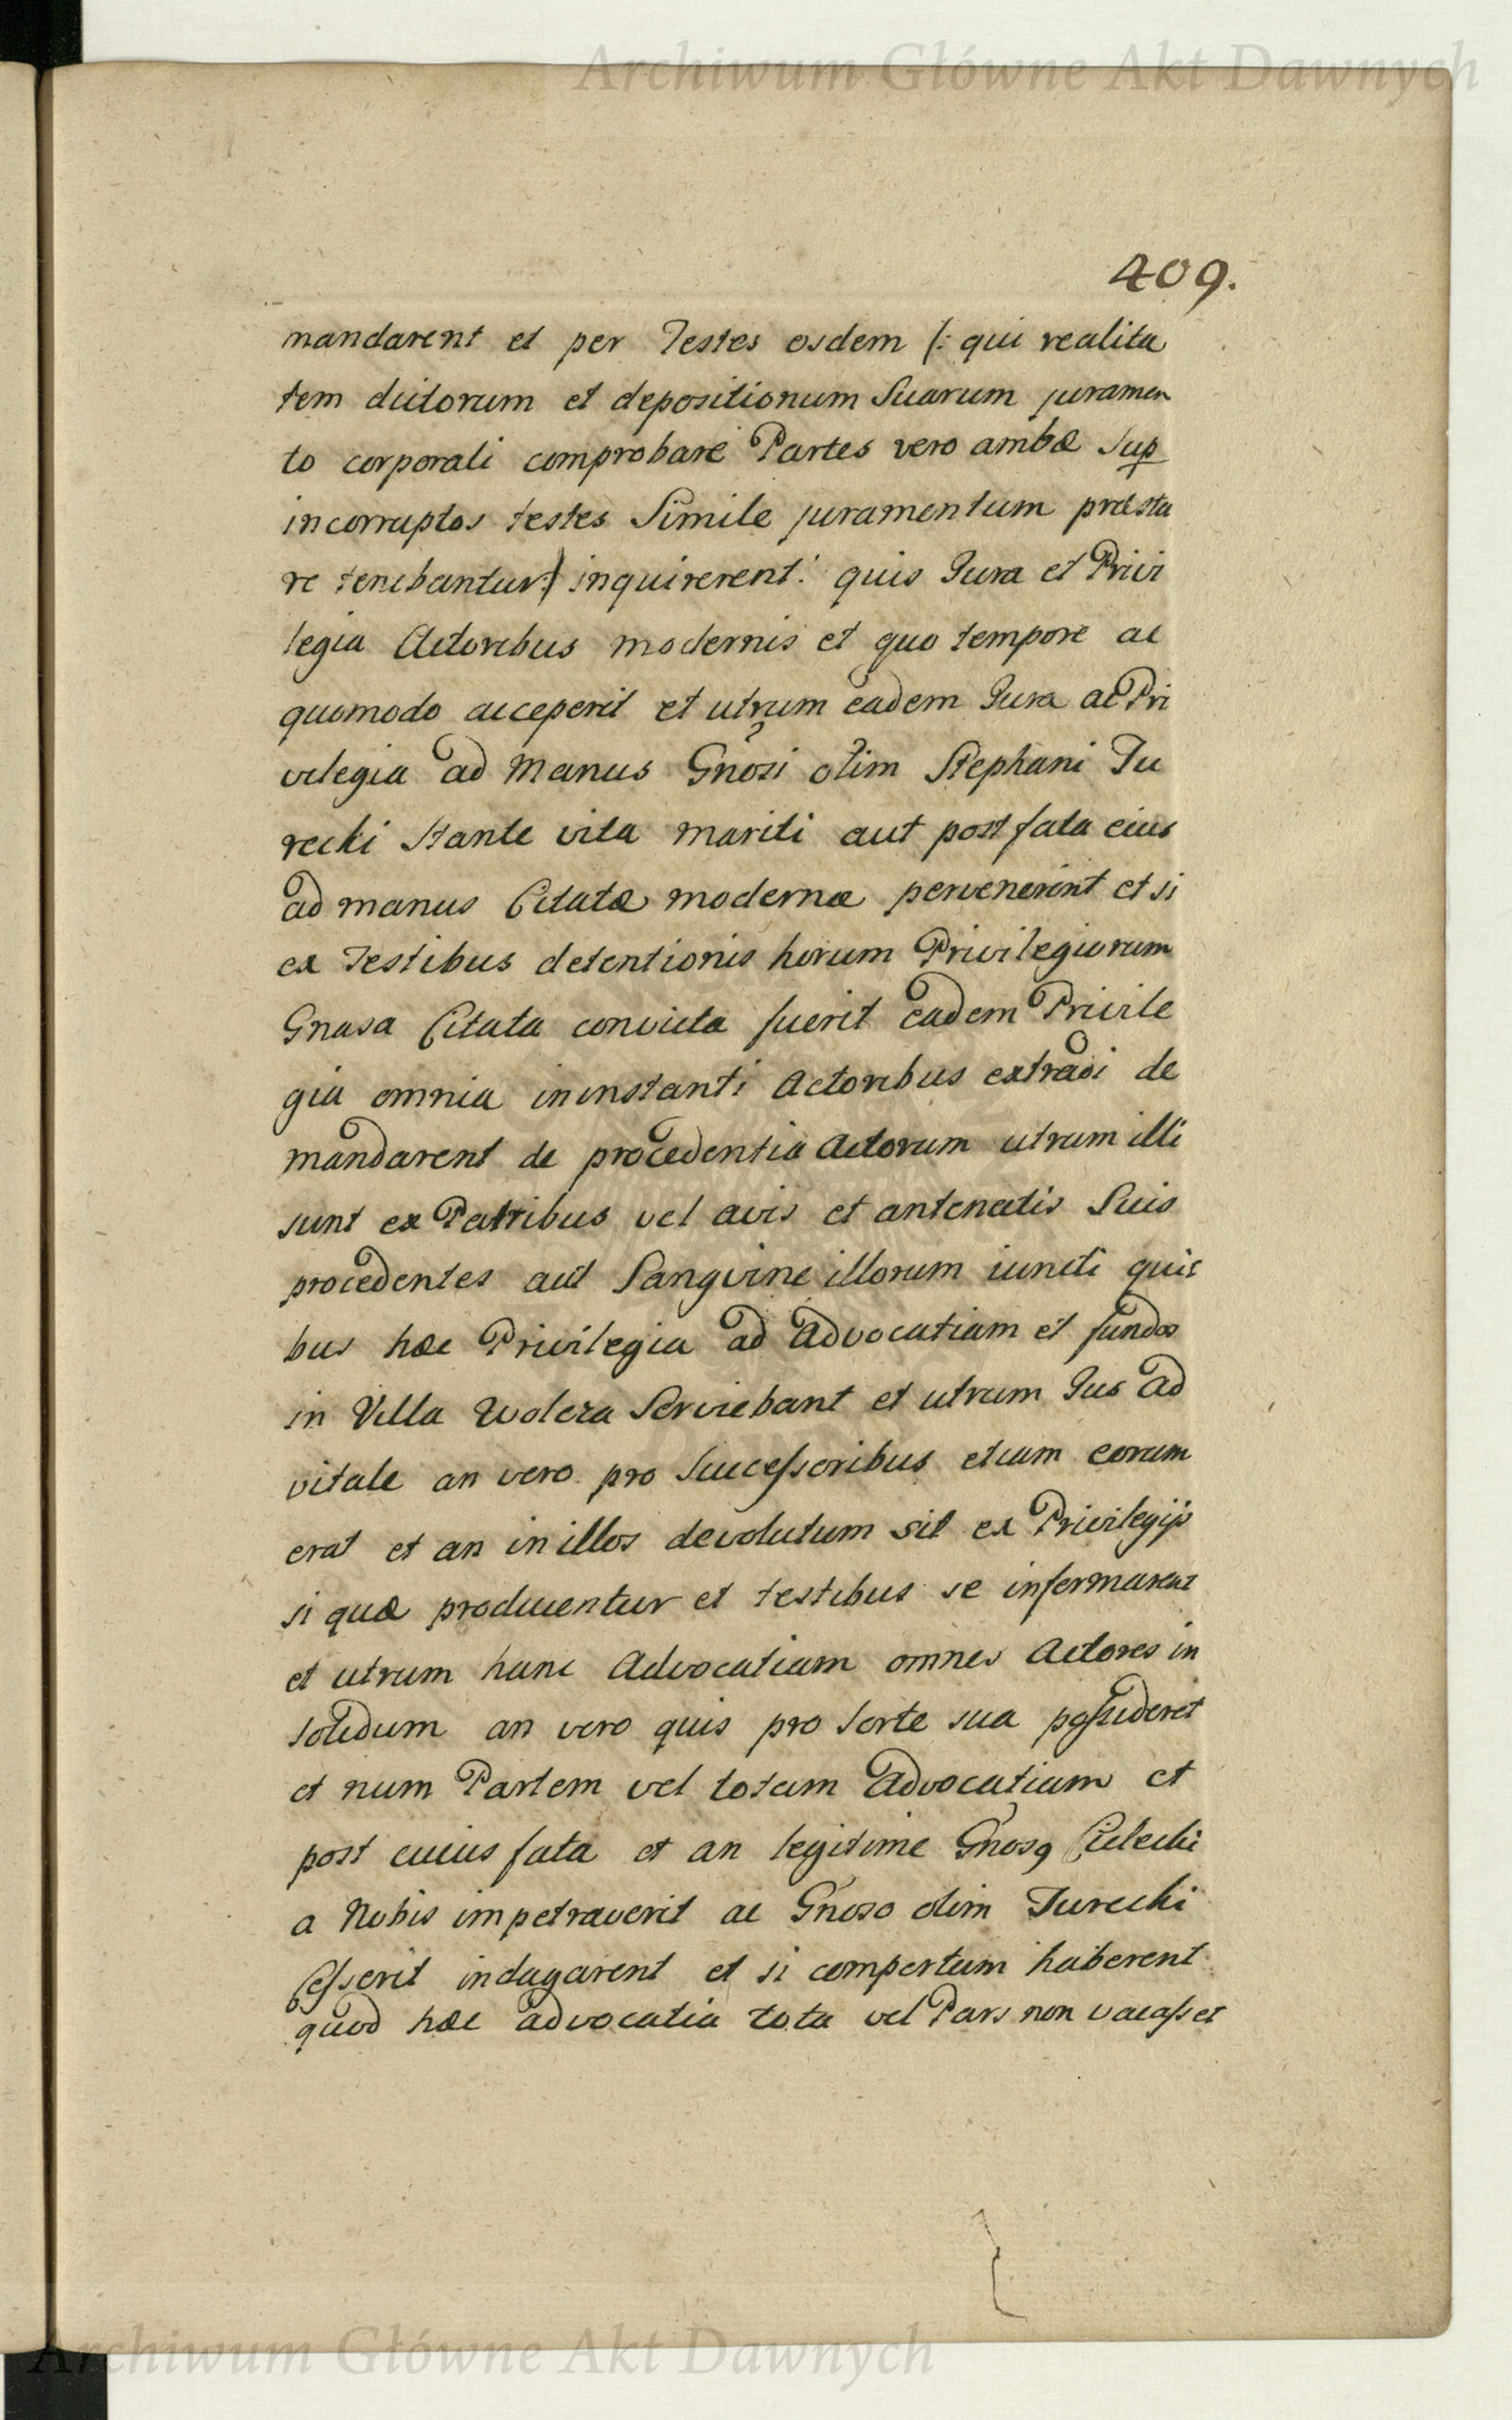 Archiwum Główne Akt Dawnych
409.
mandarent et per Testes osdem /: qui realita
tem dictorum et depositionum Suarum juramen
to corporali comprobare Partes vero ambæ sup
incorruptos testes Simile juramentum præsta
re tenebantur :/ inquirerent: quis Jura et Privi
legia Actoribus modernis et quo tempore ac
quomodo acceperit et utrum eadem Jura ac Pri
vilegia ad Manus Gnosi olim Stephani Tu
recki Stante vita mariti aut post fata eius
ad manus Citatæ modernæ pervenerint et si
ex Testibus detentionis horum Privilegiorum
Gnasa Citata convicta fuerit eadem Privile
gia omnia in instanti Actoribus extradi de
mandarent de procedentia Actorum utrum illi
sunt ex Patribus vel avis et antenatis Suis
procedentes aut Sangvine illorum iuncti qui
bus hæc Privilegia ad Advocatiam et fundos
in Villa Wolcza Serviebant et utrum Jus ad
vitale an vero pro Successoribus etiam eorum
erat et an in illos devolutum sit ex Privilegijs
si quæ producentur et testibus se informarent
et utrum hanc Advocatiam omnes Actores in
solidum an vero quis pro Sorte sua possideret
et num Partem vel totam Advocatiam et
post cuius fata et an legitime Gnosq Cielecki
a Nobis impetraverit ac Gnoso olim Turecki
Cesserit indagarent et si compertum haberent
quod hæc advocatia tota vel Pars non vacasset
Archiwum Główne Akt Dawnych